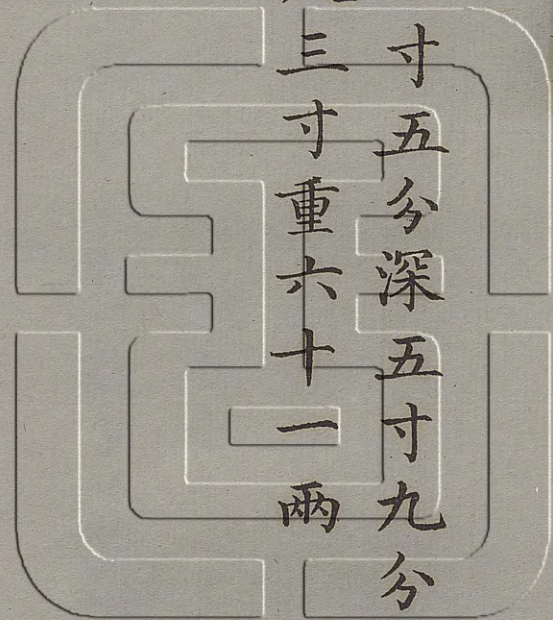 寸五分深五寸九分
三寸重六十一兩